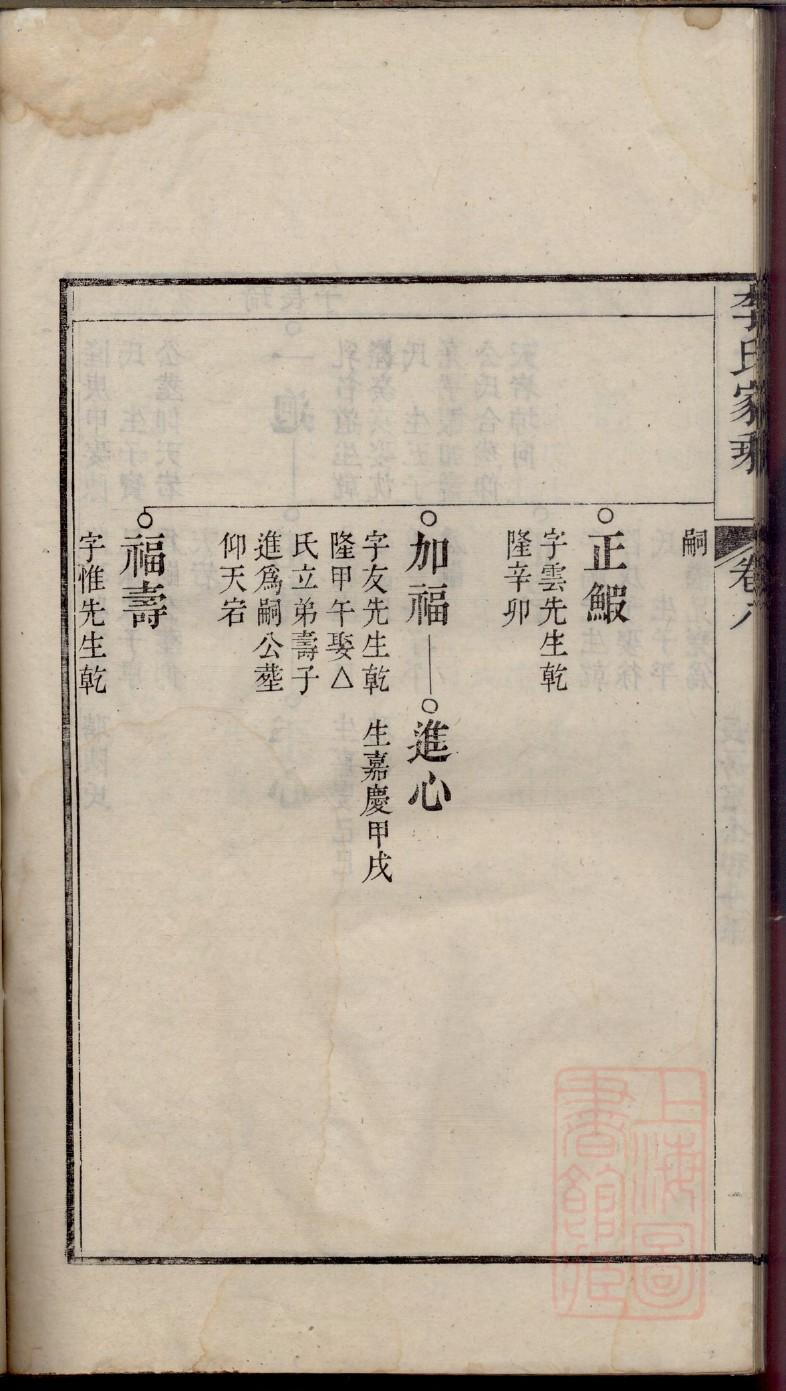 氏家乘
卷八
嗣
正鰕
字雲先生乾
隆辛卯
加福
字友先生乾
隆甲午娶△
氏立弟壽子
進爲嗣公塟
仰天宕
進心
生嘉慶甲戌
福壽
字惟先生乾
上海圖
書館藏